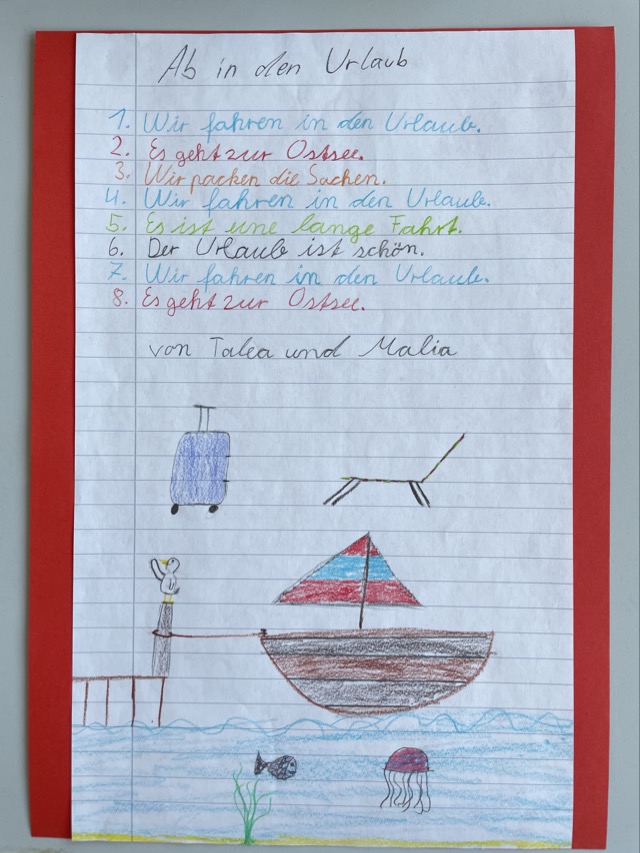 Ab in den Urlaub
1. Wir fahren in den Urlaub.
2. Es geht zur Ostsee.
3. Wir packen die Sachen.
4. Wir fahren in den Urlaub.
5. Es ist eine lange Fahrt.
6. Der Urlaub ist schön.
7. Wir fahren in den Urlaub.
8. Es geht zur Ostsee.
von Talea und Malia